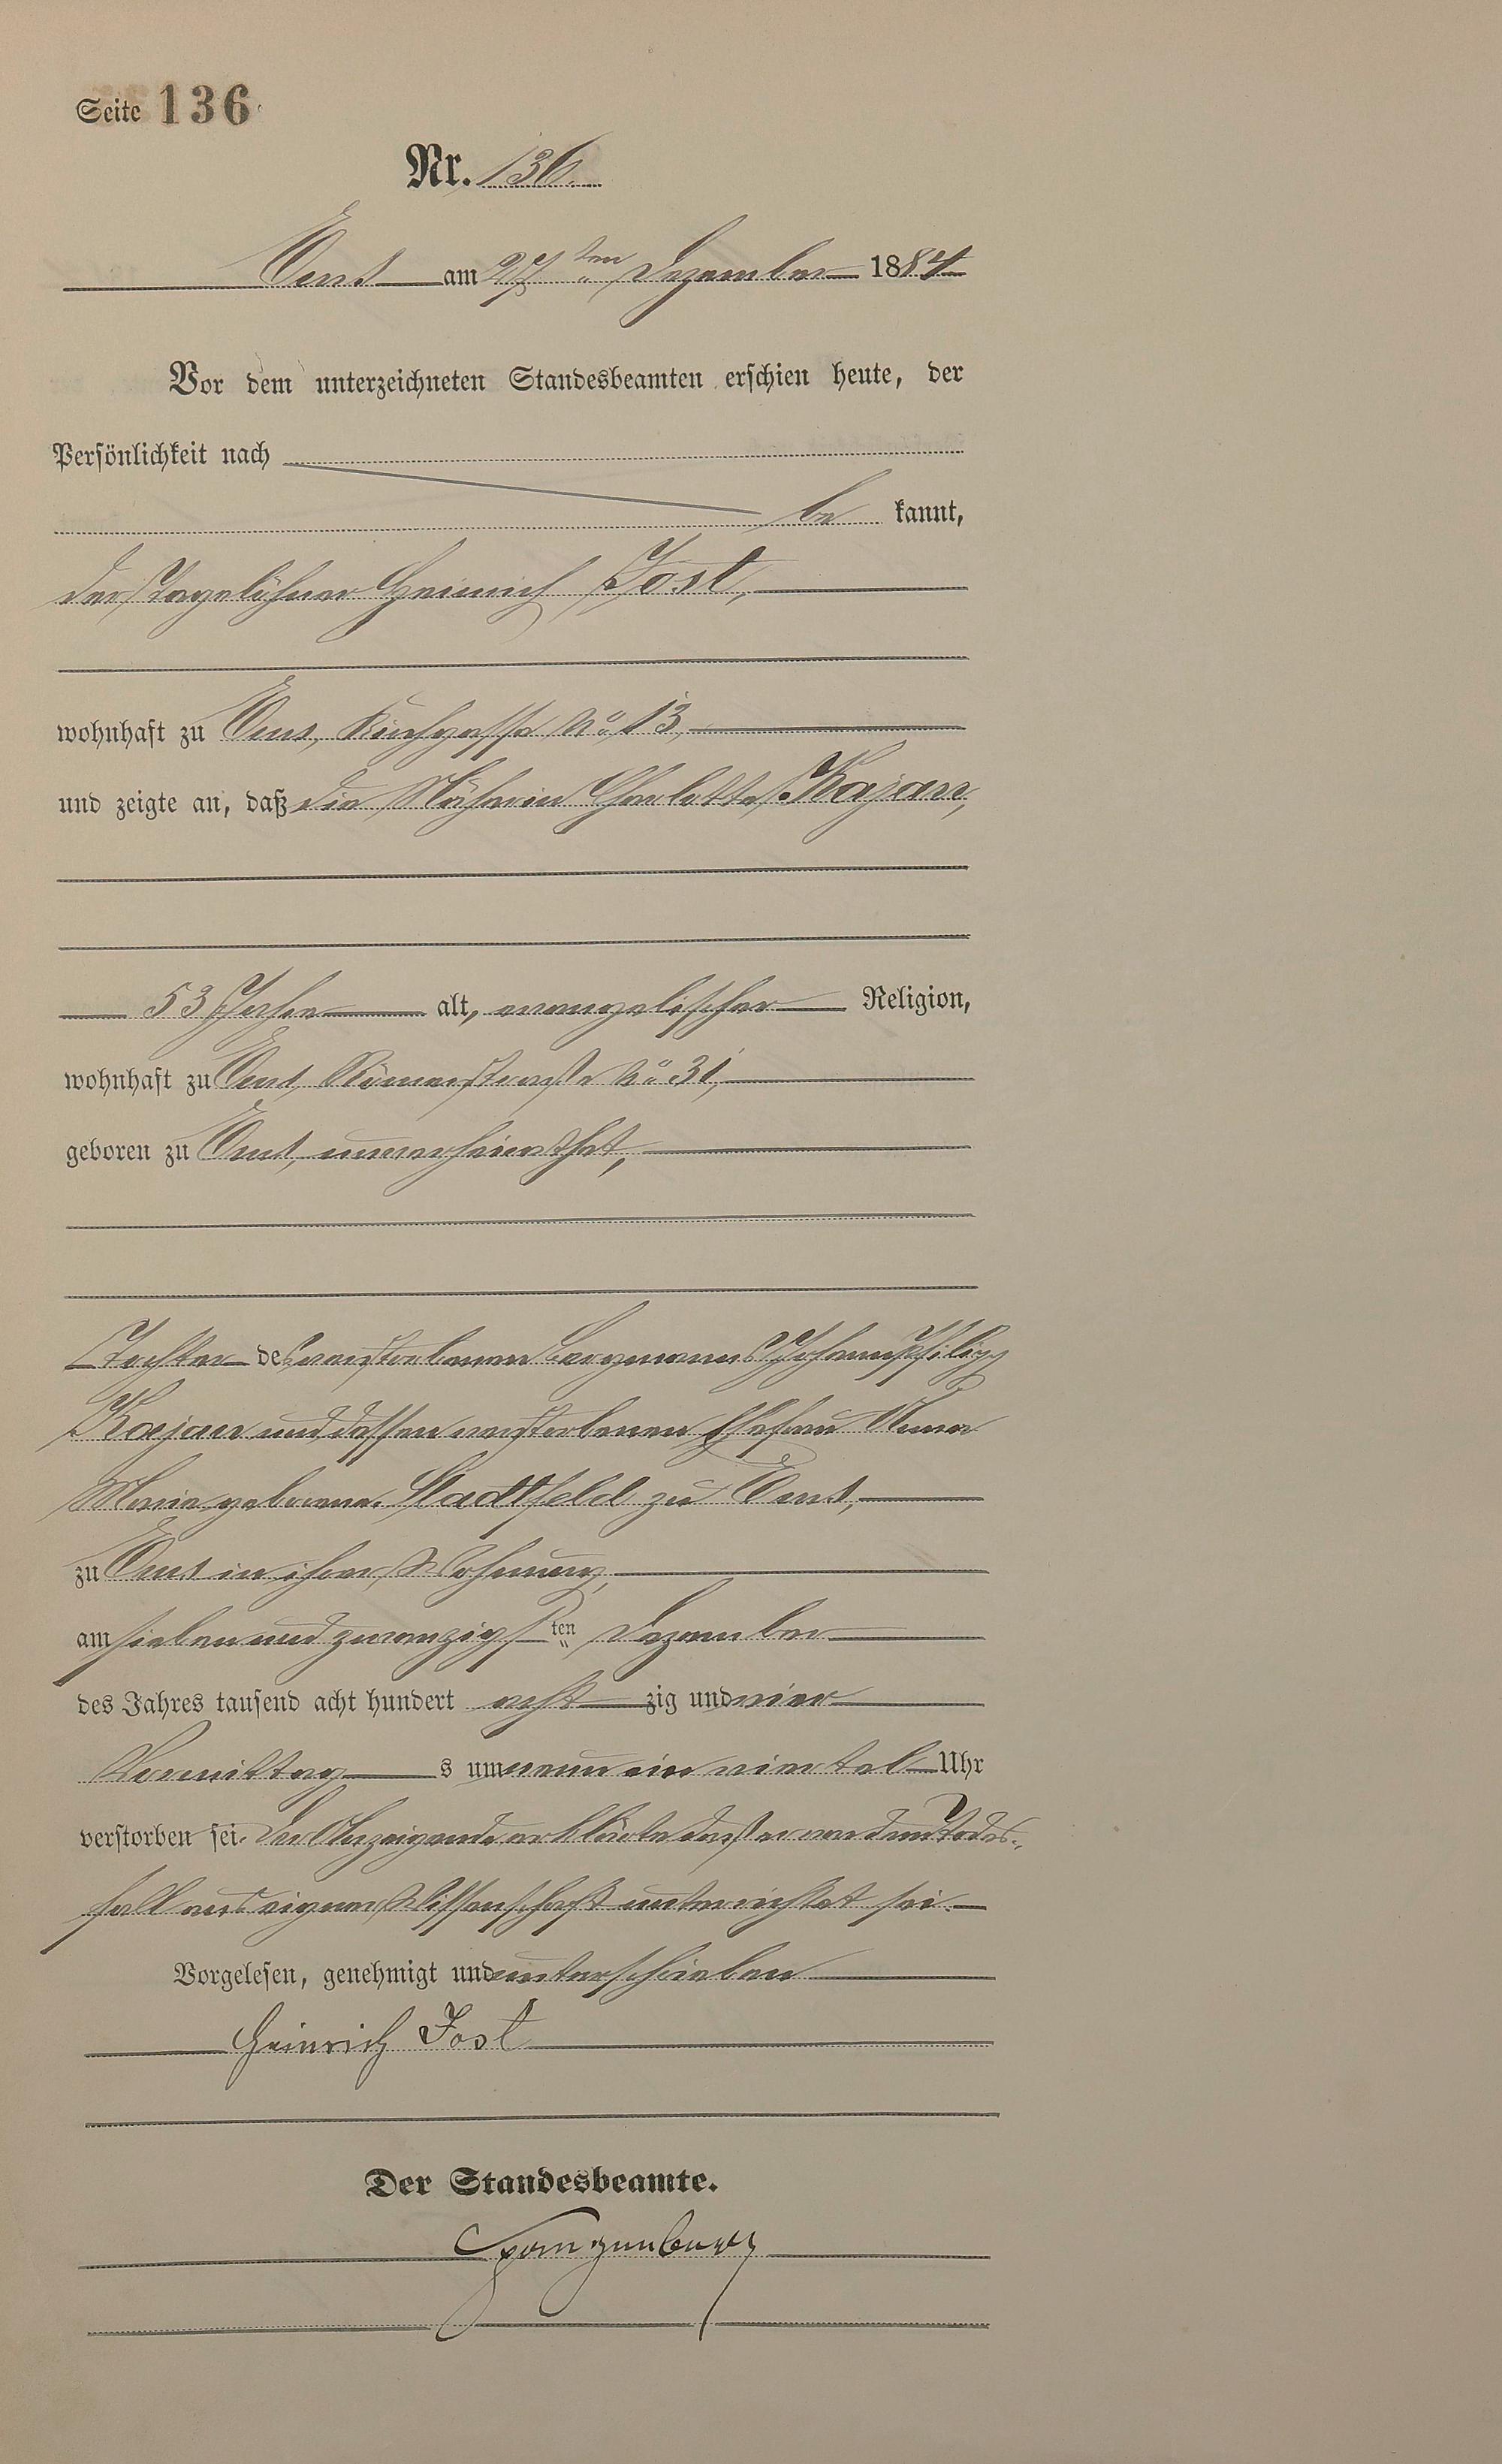 Seite 136
Nr. 136.
Ems am 27ten Dezember 1884
Vor dem unterzeichneten Standesbeamten erschien heute, der
Persönlichkeit nach
be kannt,
der Tagelöhner Heinrich Jost,
wohnhaft zu Ems, Kirchgasse No 13,
und zeigte an, daß die Näherin Charlotte Kajan,
53 Jahre alt, evangelischer Religion,
wohnhaft zu Ems, Römerstraße No 31,
geboren zu Ems, unverheirathet,
Tochter des verstorbenen Bergmanns Johann Philipp
Kajan und dessen verstorbenen Ehefrau Anna
Maria geborene Stadtfeld zu Ems,
zu Ems in ihrer Wohnung,
am sieben und zwanzigsten Dezember
des Jahres tausend acht hundert acht zig und vier
Vormittag s um neun ein viertel Uhr
verstorben sei. Der Anzeigende erklärte daß er von dem Todes-
fall aus eigner Wissenschaft unterrichtet sei.
Vorgelesen, genehmigt und unterschrieben
Heinrich Jost
Der Standesbeamte.